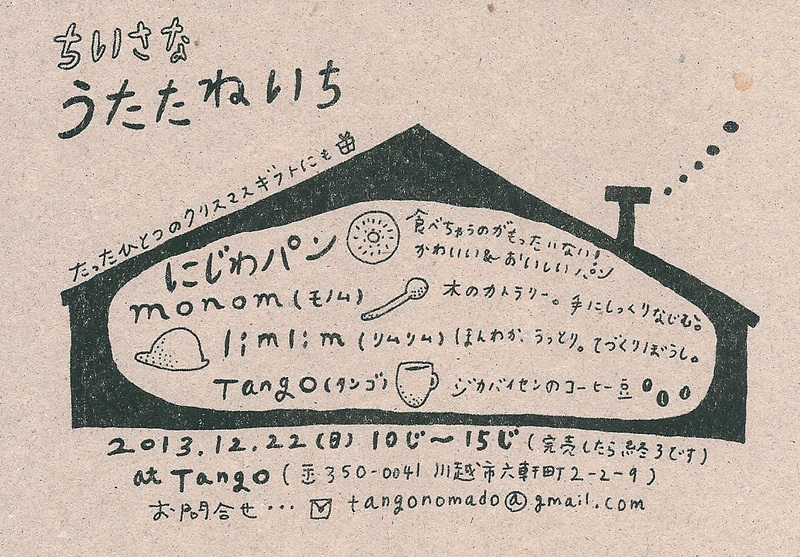 ちいさな
うたたねいち
たったひとつのクリスマスギフトにも
にじわパン
食べちゃうのがもったいない!
かわいい&おいしいパン
monom(モノム)
木のカトラリー。手にしっくりなじむ。
limlim(リムリム)ほんわか、うっとり。てづくりぼうし。
Tango(タンゴ)
ジカバイセンのコーヒー豆
2013.12.22(日)10じ〜15じ(完売したら終了です)
at Tango(〒350-0041 川越市六軒町2-2-9)
お問合せ… tangonomado@gmail.com